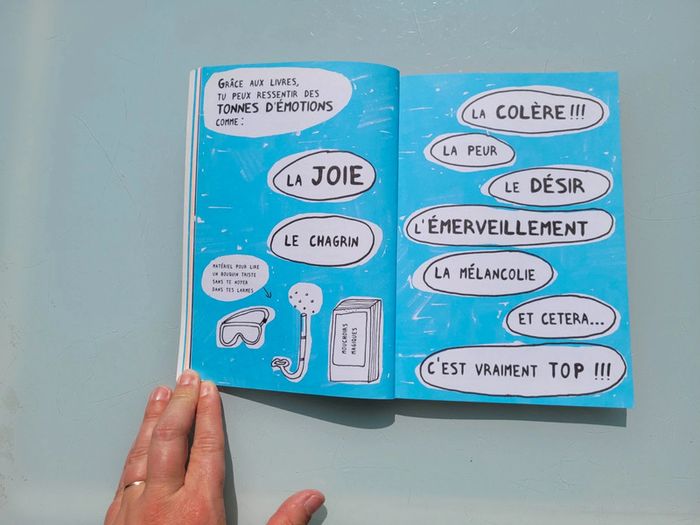 GRÂCE AUX LIVRES,
TU PEUX RESSENTIR DES
TONNES D'ÉMOTIONS
COMME :
LA JOIE
LE CHAGRIN
MATÉRIEL POUR LIRE
UN BOUQUIN TRISTE
SANS TE NOYER
DANS TES LARMES
MOUCHOIRS
MAGIQUES
LA COLÈRE !!!
LA PEUR
LE DÉSIR
L'ÉMERVEILLEMENT
LA MÉLANCOLIE
ET CETERA...
C'EST VRAIMENT TOP !!!